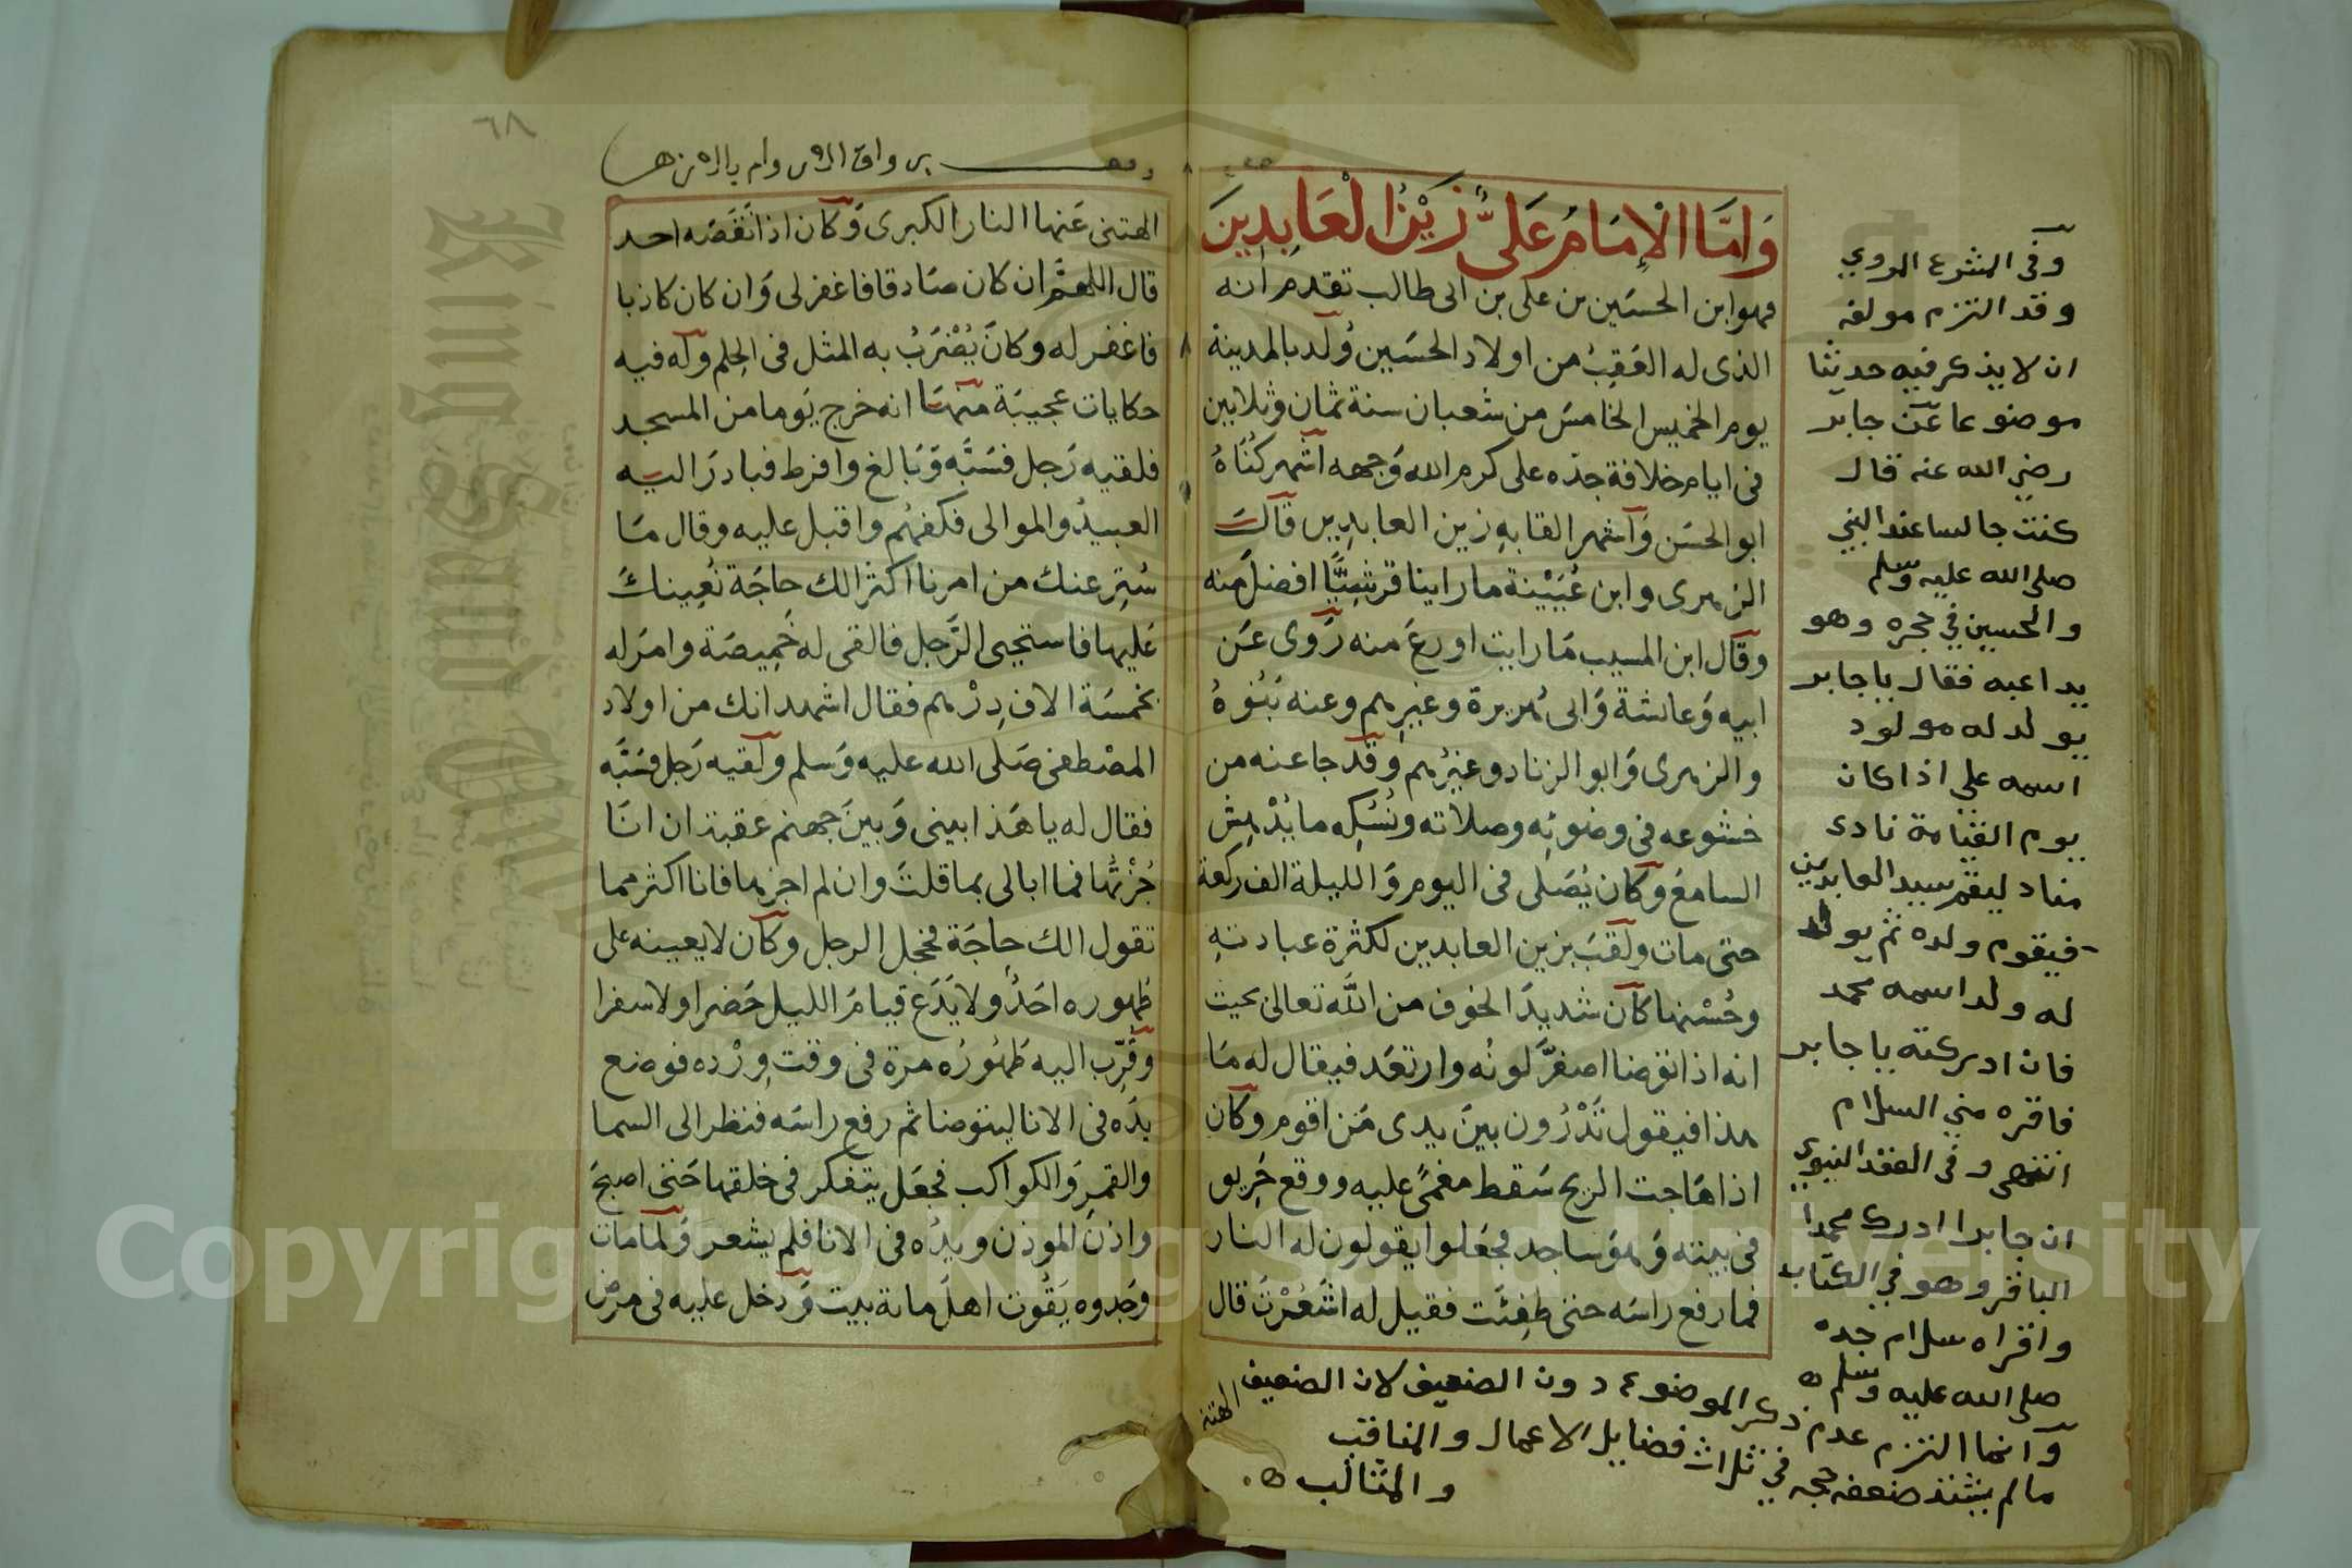 وَامَّا الْإِمَامُ عَلىُّ زَيْنُ الْعَابِدِينَ
فهو ابن الحسَين بن على بن ابى طالب تقدم انه
الذى له العَقِبُ من اولاد الحسَين وُلد بالمدينة
يوم الخميس الخامسَ من شعبان سنة ثمان وثلاثين
فى ايام خلافة جدّه على كرم الله وَجهه اشهر كُناهُ
ابو الحسَن وَاشهر القابهِ زين العابدِين قالَ
الزهرى وابن عُيَيْنة ما راينا قرشِيًّا افضلَ منه
وقال ابن المسيب مَا رايت اورعَ منه رَوى عَن
ابيه وَعائشة وَابى هُريرة وغيرِهم وعنه بَنُوهُ
والزهرى وَابو الزناد وغيرُهم وقد جا عنه من
خشوعه فى وضوئِه وصلاته ونُسُكِه ما يُدْهِش
السامعَ وكان يُصَلى فى اليوم وَالليلة الف ركعة
حتى مات ولقبَ بزين العابدين لكثرة عبادتهِ
وحُسْنها كان شديدَ الخوف من اللَّه تعالى بحيث
انه اذا توضا اصفرَّ لونُه وارتعَد فيقال له مَا
هذا فيقول تَدْرُون بينَ يدى مَن اقوم وكان
اذا هَاجت الريح سَقط مغمىً عليه ووقع حَريق
فى بيته وَهوَ ساجد فجعَلوا يقولون له النار
فما رفع راسَه حتى طفِئَت فقيل له اشَعُرْتَ قال
الهتنى
وفى المشرع الروي
وقد التزم مولفه
ان لا يذكر فيه حديثا
موضوعا عن جابر
رضى الله عنه قال
كنت جالسا عند النبي
صلى الله عليه وسلم
والحسين في حجره وهو
يداعبه فقال يا جابر
يولد له مولود
اسمه علي اذا كان
يوم القيامة نادى
مناد ليقم سيد العابدين
فيقوم ولده ثم يولد
له ولد اسمه محمد
فان ادركته يا جابر
فاقره مني السلام
انتهى وفى العقد النبوي
ان جابرا ادرك محمدا
الباقر وهو في الكتاب
واقراه سلام جده
صلى الله عليه وسلم ه
وانما التزم عدم ذكر الموضوع دون الضعيف لان الضعيف
ما لم يشتد ضعفه حجه في ثلاث فضايل الاعمال والمناقب
والمثالب ه
٦٨
الهتنى عَنها النار الكبرى وَكان اذا نقصَه احد
قال اللهمَّ ان كان صَادقا فاغفر لى وَان كان كاذبا
فاغفر له وكانَ يُضْرَبُ به المثل فى الحِلم وله فيه
حكايات عجيبَة منهَا انه خرج يَوما من المسجد
فلقيه رَجل فسَبَّه وَبَالغ وافرط فبادرَ اليه
العبيدُ والموالى فكفهُم واقبل عليه وقال مَا
سُتِر عنك من امرنا اكثر الك حاجَة نُعِينكَ
عَليها فاستحيى الرَّجل فالقى له خَمِيصَة وامرَ له
بخمسَة الاف دِرْهم فقال اشهد انك من اولاد
المصْطفى صَلى الله عليه وَسلم ولقيه رَجل فسَبَّه
فقال له يا هَذا بينى وَبينَ جهنم عقبة ان انَا
جُزْتُها فما ابالى بما قلتَ وان لم اجزها فانا اكثر مما
تقول الك حاجَة فخجل الرجل وكان لا يعينه على
طهوره احَدٌ ولا يَدَع قيامَ الليل حَضرا ولا سفرا
وقُرِّب اليه طَهُورُه مرة فى وقت وِرْده فوضع
يدَه فى الانا ليتوضا ثم رفع راسَه فنظر الى السما
والقمرِ وَالكواكب فجعَل يتفكر فى خلقها حَتى اصبحَ
واذنَ الموذن ويدُه فى الانا فلم يشعر وَلما مات
وجَدوه يَقُوت اهلَ مائة بيت وَدخل عليه فى مرض
Copyright © King Saud University
King Saud University